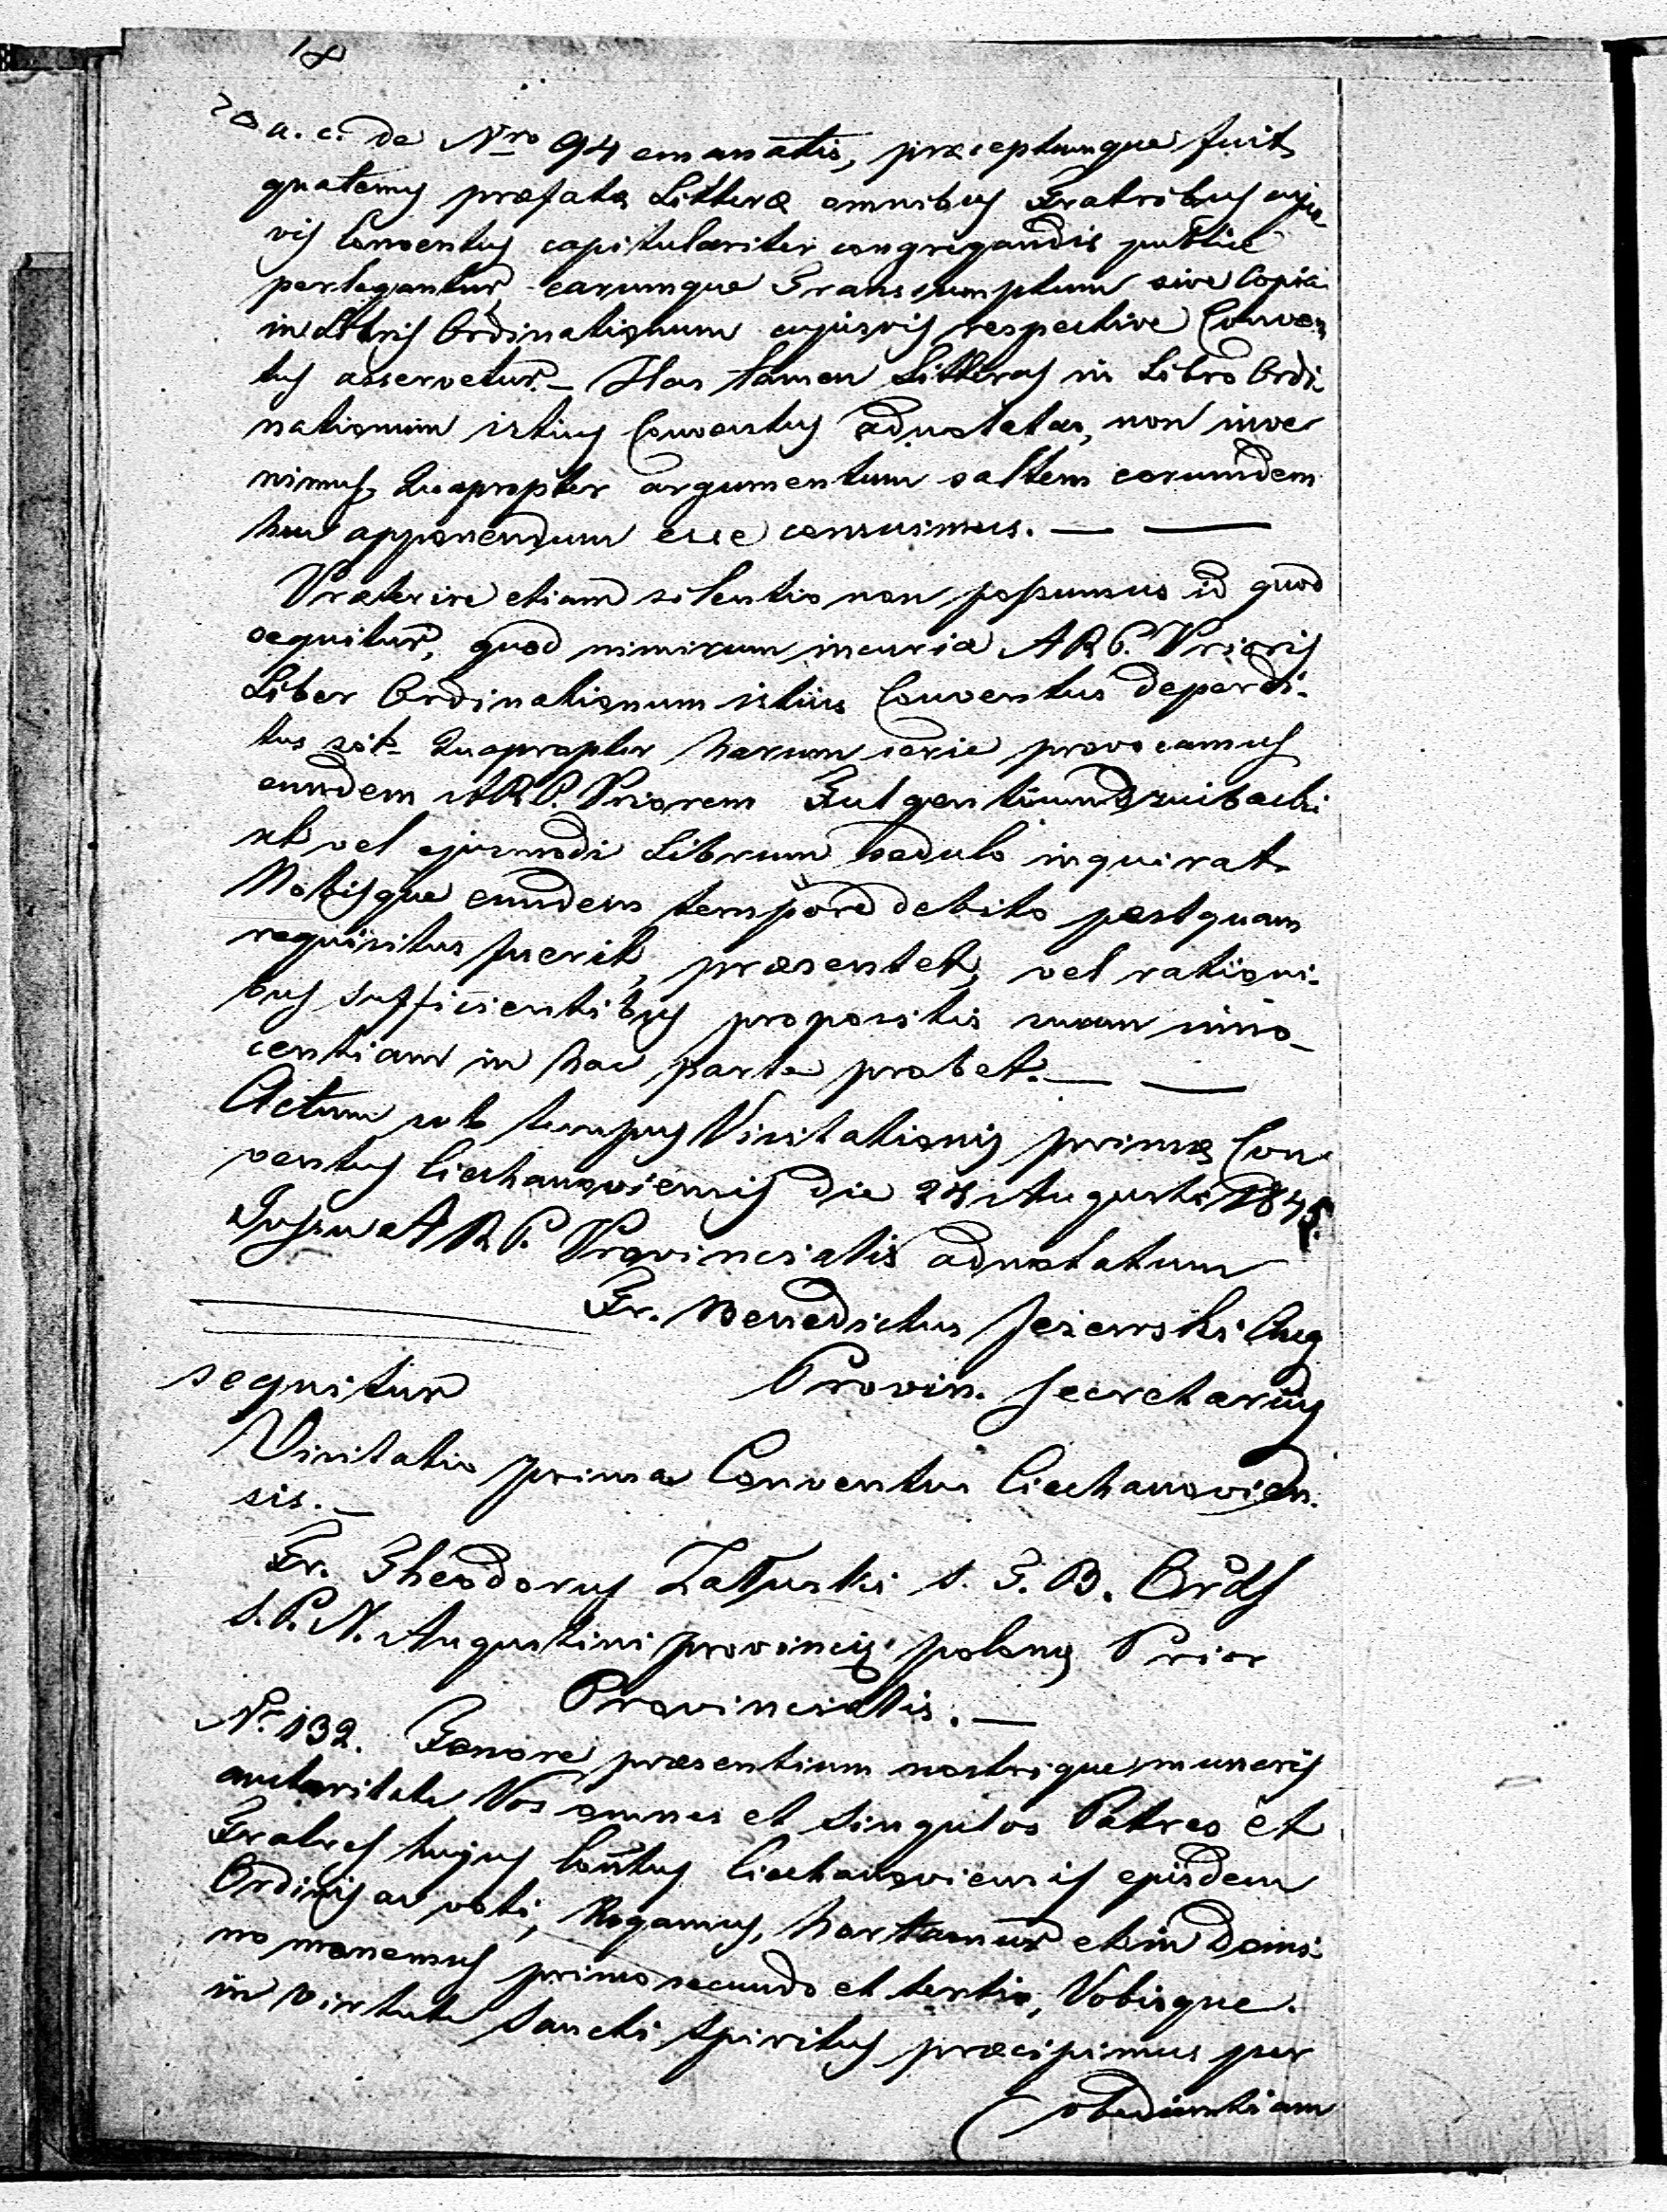 18
20 a. c. de Nro 94 emanatis, præceptumque fuit
quatenus præfatæ Litteræ omnibus Fratribus cujus
vis Conventus capitulariter congregandis publice
perlegantur, earumque Transsumptum sive Copia
in Libris Ordinationum cujusvis respective Conven
tus asservetur. — Has tamen Litteras in Libro Ordi
nationum istius Conventus adnotatas, non inve
nimus, Quapropter argumentum saltem earumdem
huc apponendum esse censuimus. — —
Præterire etiam silentio non possumus id quod
sequitur, quod nimirum incuria A R P. Prioris
Liber Ordinationum istius Conventus deperdi-
tus sit. Quapropter harum serie provocamus
eumdem A R P. Priorem Fulgentium
ut vel ejusmodi Librum sedulo inquirat
Nobisque eumdem tempore debito postquam
requisitus fuerit, præsentet, vel rationi-
bus sufficientibus propositis suam inno-
centiam in hac parte probet. — —
Actum sub tempus Visitationis primæ Con
ventus Ciechanoviensis die 24 Augusti 1845.
Jussu A R P. Provincialis adnotatum
Fr. Benedictus Jezierski Aug
Provin. Secretarius
sequitur
Visitatio prima Conventus Ciechanovien.
sis. —
Fr. Theodorus Załuski S. T. B. Ords
S. P. N. Augustini provinciæ polonæ Prior
Provincialis. —
No 132. Tenore præsentium nostrique muneris
auctoritate Vos omnes et singulos Patres et
Fratres hujus Contus Ciechanoviensis ejusdem
Ordinis ac voti, Rogamus, hortamur et in Domi-
no monemus primo secundo et tertio, Vobisque
in virtute Sancti Spiritus præcipimus per
obedientiam